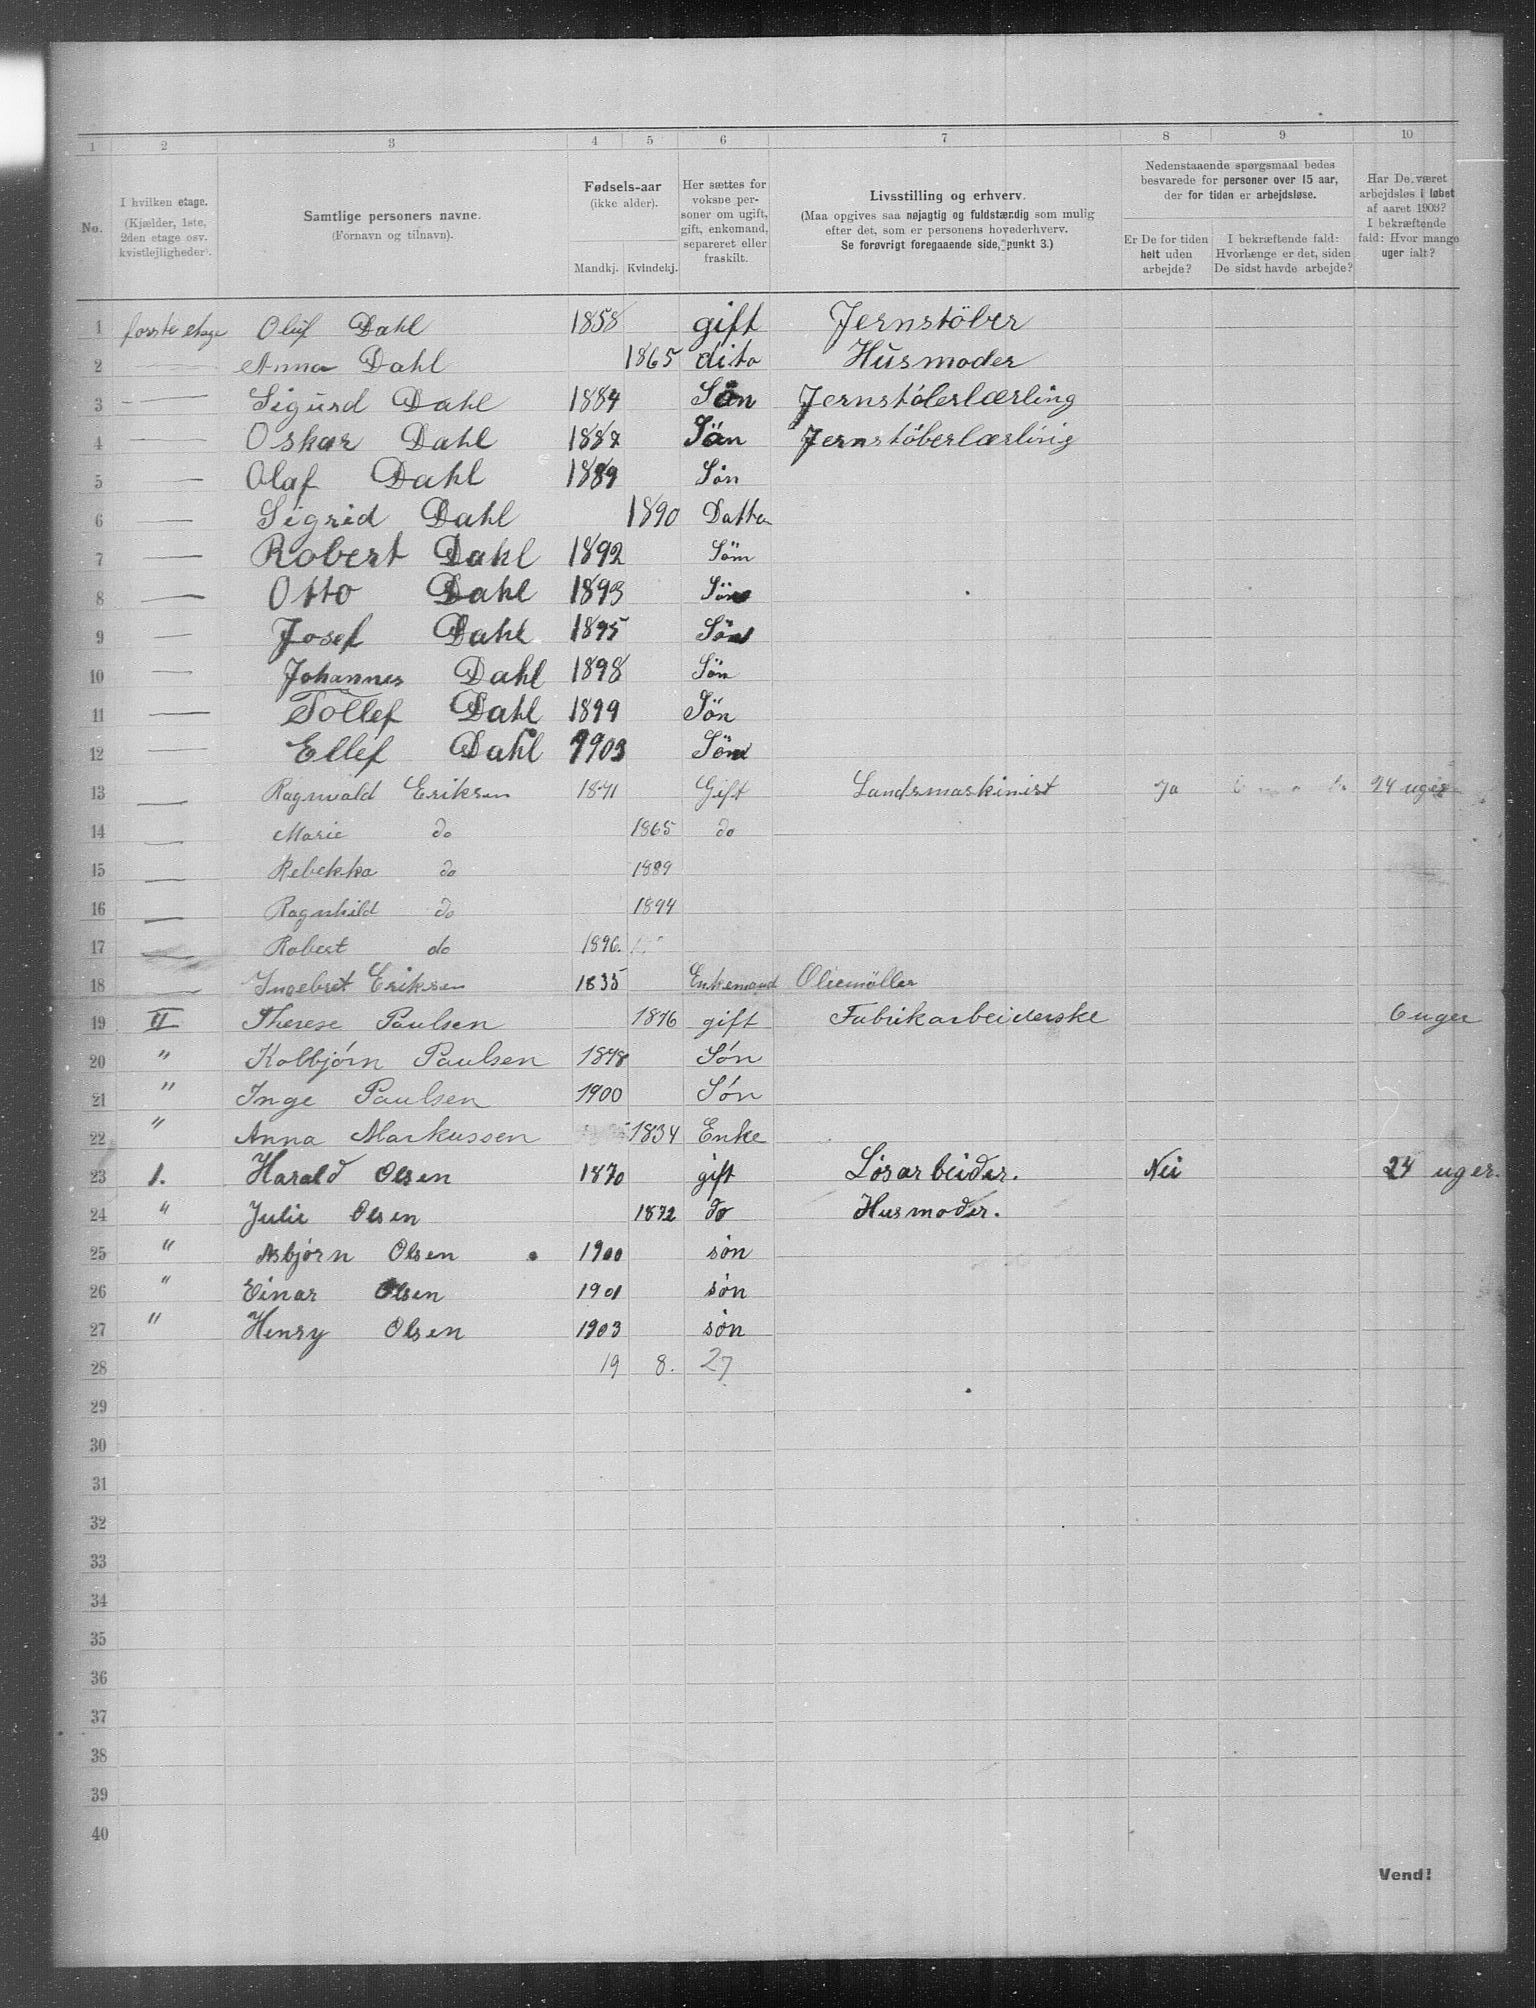 1 2 3 4 5 6 7 8 9 10
No.
I hvilken etage.
(Kjælder, 1ste,
2den etage osv.
kvistlejligheder).
Samtlige personers navne.
(Fornavn og tilnavn).
Fødsels-aar
(ikke alder).
Mandkj. Kvindekj.
Her sættes for
voksne per-
soner om ugift,
gift, enkemand,
separeret eller
fraskilt.
Livsstilling og erhverv.
(Maa opgives saa nøjagtig og fuldstændig som mulig
efter det, som er personens hovederhverv.
Se forøvrigt foregaaende side, punkt 3.)
Nedenstaaende spørgsmaal bedes
besvarede for personer over 15 aar,
der for tiden er arbejdsløse.
Er De for tiden
helt uden
arbejde?
I bekræftende fald:
Hvorlænge er det, siden
De sidst havde arbejde?
Har De været
arbejdsløs i løbet
af aaret 1903?
I bekræftende
fald: Hvor mange
uger ialt?
1 forste etage Oluf Dahl 1858 gift Jernstöber
2 — Anna Dahl 1865 dito Husmoder
3 — Sigurd Dahl 1884 Sön Jernstöberlærling
4 — Oskar Dahl 1887 Sön Jernstöberlærling
5 — Olaf Dahl 1889 Sön
6 — Sigrid Dahl 1890 Datter
7 — Robert Dahl 1892 Sön
8 — Otto Dahl 1893 Sön
9 — Josef Dahl 1895 Sön
10 — Johannes Dahl 1898 Sön
11 — Tollef Dahl 1899 Sön
12 — Ellef Dahl 1903 Sön
13 — Ragnvald Eriksen 1871 Gift Landsmaskinist Ja 24 uger
14 — Marie do 1865 do
15 — Rebekka do 1889
16 — Ragnhild do 1894
17 — Robert do 1896.
18 — Ingebret Eriksen 1835 Enkemand Oliemöller
19 II Therese Paulsen 1876 gift Fabrikarbeiderske 6 uger
20 " Kolbjórn Paulsen 1898 Són
21 " Inge Paulsen 1900 Són
22 " Anna Markussen 1834 Enke
23 1. Harald Olsen 1870 gift Løsarbeider. Nei 24 uger.
24 " Julie Olsen 1872 do Husmoder.
25 " Asbjørn Olsen 1900 søn
26 " Einar Olsen 1901 søn
27 " Henry Olsen 1903 søn
28 19 8. 27
29
30
31
32
33
34
35
36
37
38
39
40
Vend!